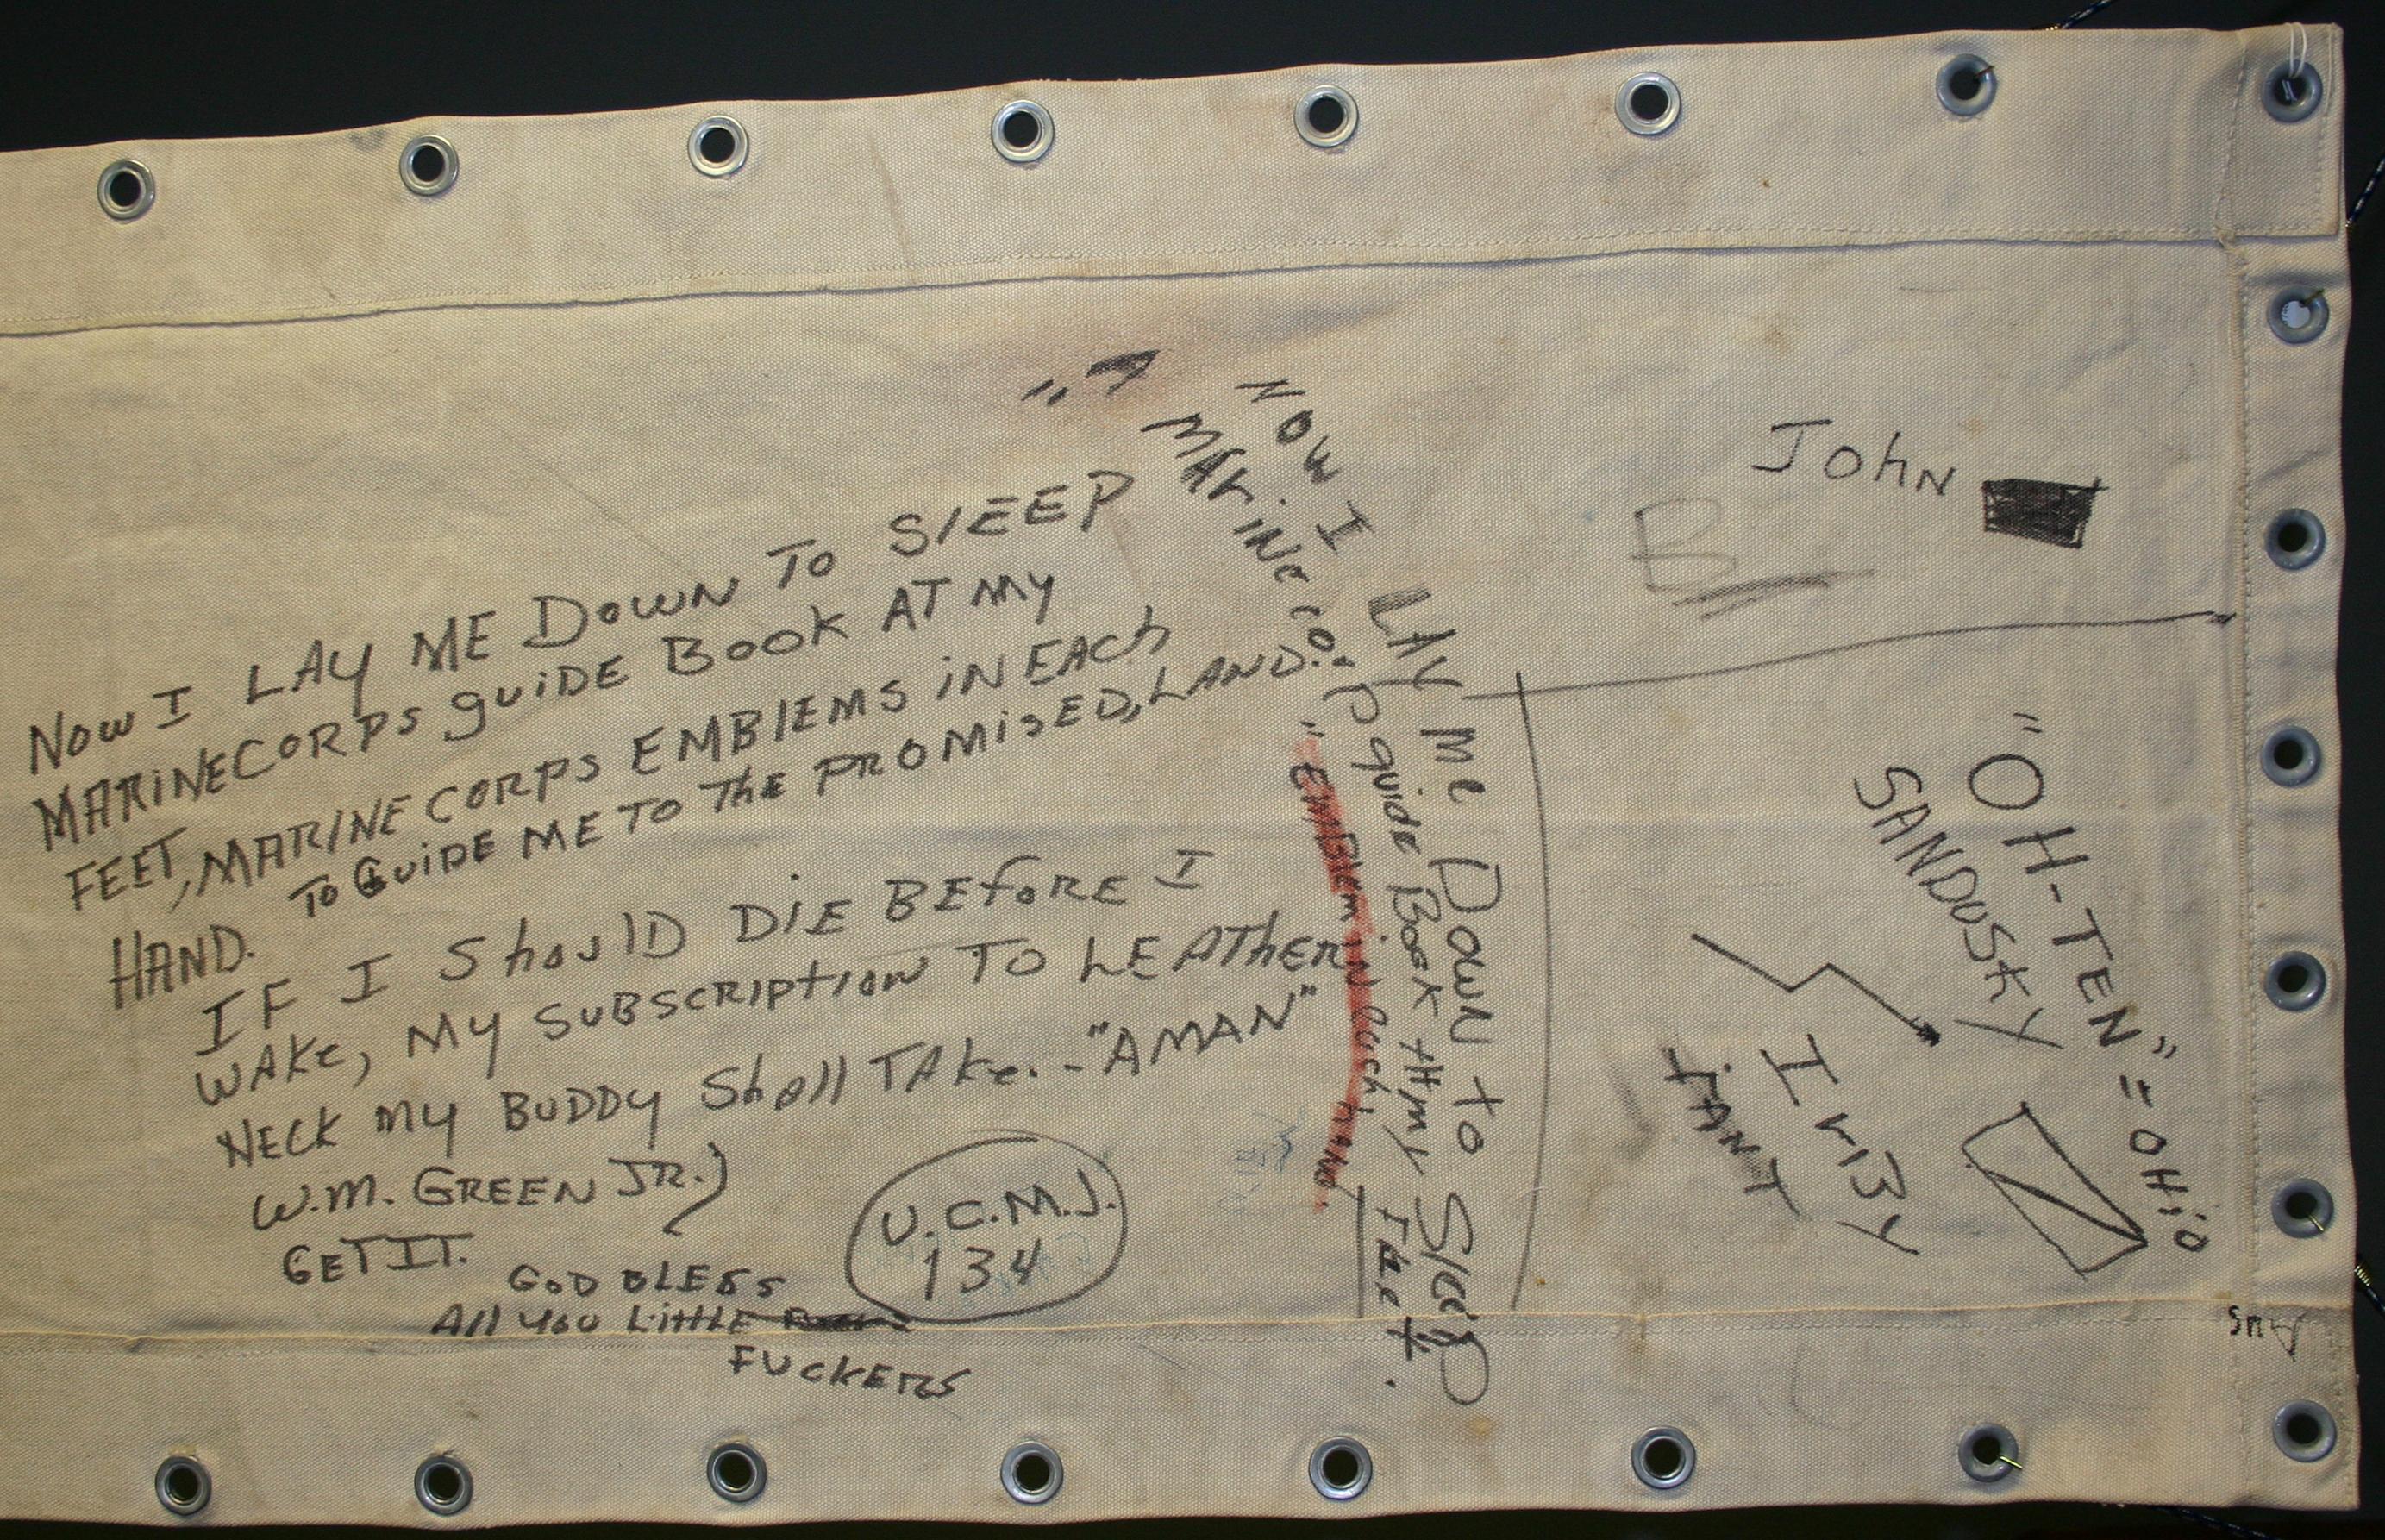 NOW I LAY ME DOWN TO SlEEP
MARINE CORPS guiDE BOOK AT MY
FEET, MARINE CORPS EMBlEMS iN EACh
HAND. To GuiDE ME TO The PROMisED, LAND.
IF I ShoulD DiE BEfoRE I
WAKe, MY SUBSCRIPtioN TO LEATHER
NECK MY BUDDY Shall TAKe. - "AMAN"
W.M. GREEN JR.)
GET IT.
GOD BLESS
All you Little
FUCKERS
U.C.M.J.
134
NOW I LAY Me DOWN to SleeP
MAriNe Corp guide Book At my Feet.
"EMBlem iN each hAND.
JohN
B
"OH-TEN" = OHiO
SANDUSKY